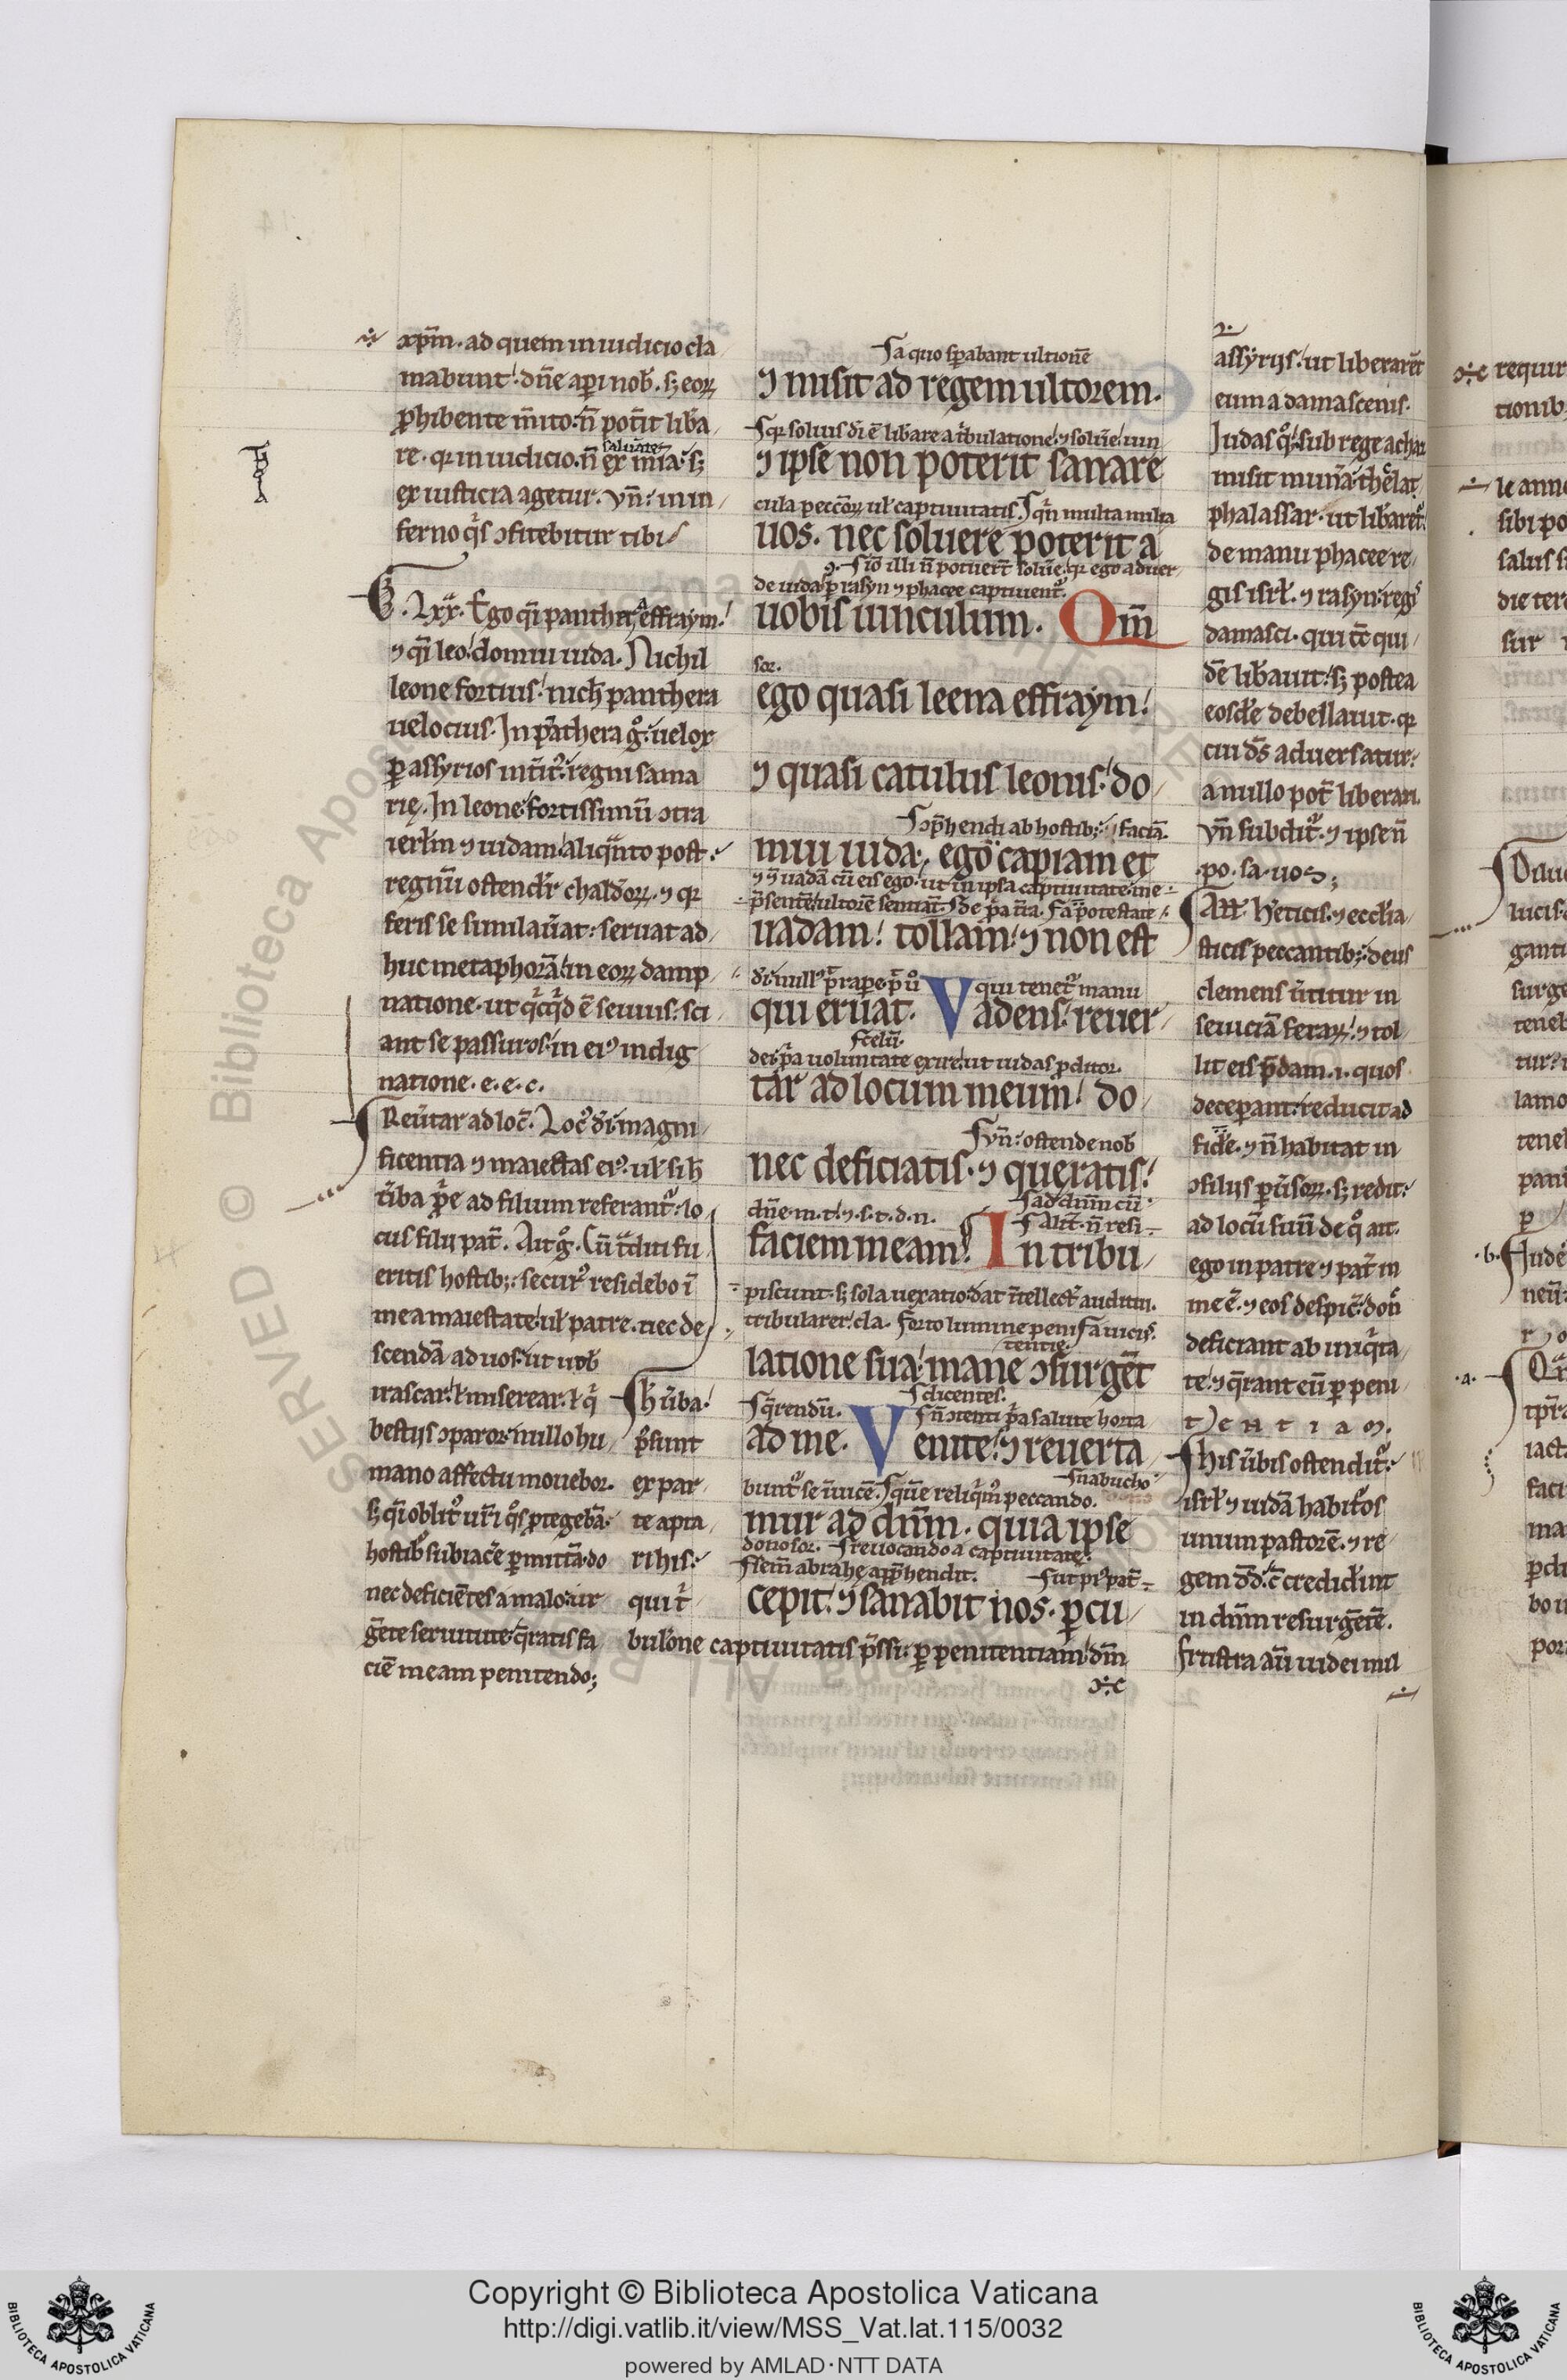 xp̄m. ad quem in iudicio cla
mabunt. dn̄e aperi nob̄. sꝫ eoꝝ
ꝓhibente m̄ito. n̄ pot̄it lib̄a
re. qꝛ in iudicio. n̄ ex mīa. sꝫ
saluare
ex iusticia agetur. vn̄. in in
ferno q̄s ꝯfitebitur tibi
G. Lxx. Ego q̄i panthera effraym.
⁊ q̄i leo. domui iuda. Nichil
leone fortius. nich̄ panthera
uelocius. In pāthera gͦ. uelox
ꝑ assyrios int̄it᷒. regni sama
rię. In leone. fortissimū ꝯtra
ierl̄m ⁊ iudam. aliq̄nto post.
regnū ostendit᷒ chaldeoꝝ. ⁊ qꝛ
feris se similau̅at. seruat ad
huc metaphorā. in eoꝝ damp
natione. ut qicq̄d ē seuius. sci
ant se passuros. in eiꝰ indig
natione. e. e. c.
Reu̅tar ad loc̄. Locꝰ dī. magni
ficentia ⁊ maiestas eiꝰ. ul̄ si h̄
u̅ba p̄re ad filium referant᷒. lo
cus filii pat̄. Ait gͦ. Cū t̄diti fu
eritis hostibꝫ. securꝰ residebo ī
mea maiestate. ul̄ patre. nec de
scendā ad uos. ut uob̄
irascar. ul̄ miserear. ul̄ q̄
bestiis ꝯparor. nullo hu
mano affectu mouebor.
sꝫ q̄i oblitꝰ ur̄i q̄s ꝓtegebā.
hostibꝰ subiac̄e ꝑmittā. do
nec deficiētes a malo. ur
gēte seruitute. q̄ratis fa
ciē meam penitendo;
h̄ u̅ba.
p̄sunt
ex par
te apta
ri his.
qui t̄
bul̄one captiuitatis p̄ssi. ꝑ penitentiam. dm̄
a quo sperabant ultionē
⁊ misit ad regem ultorem.
qꝛ solius dī ē lib̄are a t̄bulatione. ⁊ solu̅e. uin
⁊ ipse non poterit sanare
cula peccōꝝ ul̄ captiuitatis. qn̄ multa milia
uos. nec soluere poterit a
Iō illi n̄ potuer̄t solu̅e. qꝛ ego aduer
de iuda ꝑ rasyn ⁊ phacee captiuent᷒.
uobis uinculum. Qm̄
sor.
ego quasi leena effraym.
⁊ quasi catulus leonis. do
ꝯp̄hendi ab hostibꝫ. faciā.
mui iuda. ego capiam et
⁊ uadā cū eis ego. ut in ipsa captiuitate. me
p̄sentē. ultorē sentiāt. de p̄a t̄ra. a potestate
uadam. tollam. ⁊ non est
dī. nullꝰ rapere pͦt
qui tenet᷒ manu
qui eruat. Vadens. reuer
scelū.
dei. p̄a uoluntate exire. ut iudas ꝓditor.
tar ad locum meum. do
vn̄. ostende nob̄
nec deficiatis. ⁊ queratis.
dn̄e. m. t. ⁊. s. t. d. n.
ad dnm̄ cū
Alit̄. n̄ resi
faciem meam. In tribu
piscunt. sꝫ sola uexatio. dat ītellect̄ auditui.
tribularer. cla. orto lumine peni a uicis.
tentie.
latione sua. mane ꝯsurgēt
q̄rendū.
dicentes.
n̄ ꝯtenti p̄a salute horta
ad me. Venite. ⁊ reuerta
bunt᷒ se inuicē. quē reliq̄mꝰ peccando.
nabucho
mur ad dnm̄. quia ipse
donosor. reuocando a captiuitate.
Sem̄ abrahę app̄hendit. ut piꝰ pat̄
cepit. ⁊ sanabit nos. ꝑcu
assyriis. ut liberarēt
eum a damascenis.
Iudas qͦꝫ. sub rege achaz
misit mun̄a. theglat
phalassar. ut lib̄aret᷒
de manu phacee re
gis isrl̄. ⁊ rasyn. regis
damasci. qui t̄c qui
dē lib̄auit. sꝫ postea
eosdē debellauit. qꝛ
cui ds̄ aduersatur.
a nullo pot̄ liberari.
vn̄ subdit᷒. ⁊ ipse n̄
po. sa. uos;
All̄. h̄eticis. ⁊ eccl̄ia
sticis peccantibꝫ. deus
clemens u̅titur in
seuiciā feraꝝ. ⁊ tol
lit eis p̄dam .i. quos
deceperant. reducit ad
fidē. ⁊ n̄ habitat in
ꝯsiliis peru̅soꝝ. sꝫ redit.
ad locū suū de qͦ ait.
ego in patre ⁊ pat̄ in
me ē. ⁊ eos despic̄. donec
deficiant ab iniq̄ta
te. ⁊ q̄rant eū ꝑ peni
tentiam.
His u̅bis ostendit᷒.
isrl̄ ⁊ iudā habitūos
unum pastorē. ⁊ re
gem dd̄. t̄c credidint
in dnm̄ resurgētē.
frustra aū iudei mil
Copyright © Biblioteca Apostolica Vaticana
http://digi.vatlib.it/view/MSS_Vat.lat.115/0032
powered by AMLAD·NTT DATA
BIBLIOTECA APOSTOLICA VATICANA
BIBLIOTECA APOSTOLICA VATICANA